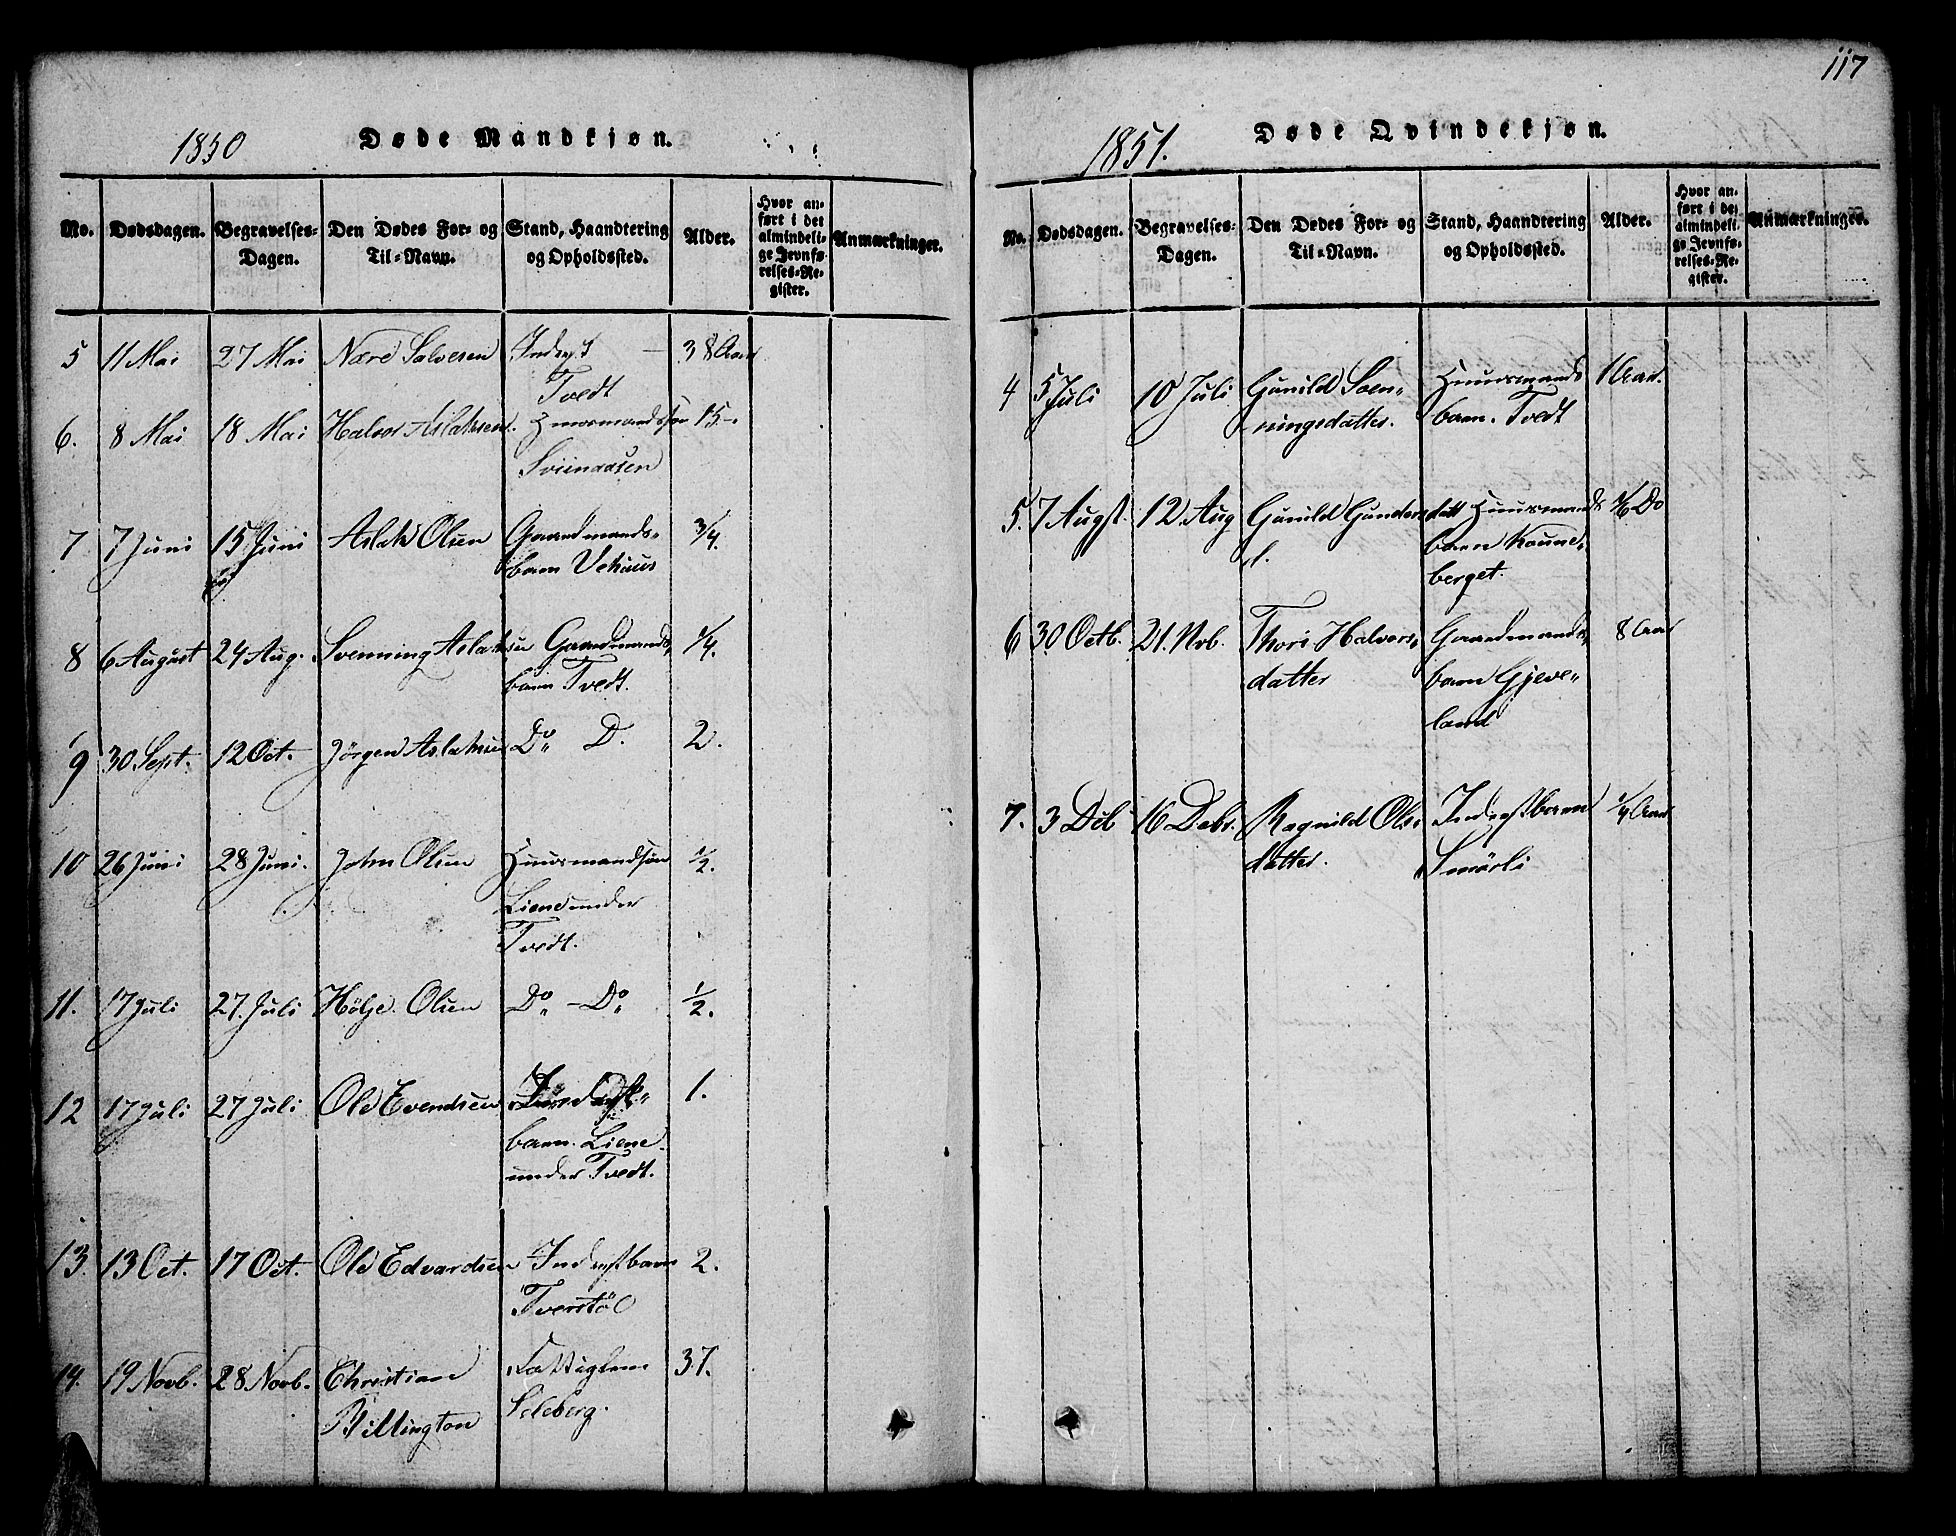 117
1850 Døde Mandkjøn.
No. Dødsdagen. Begravelses-Dagen. Den Dødes For- og Til-Navn. Stand, Haandtering og Opholdssted. Alder. Hvor anført i det almindelige Jevnførelses-Register. Anmærkninger.
5 11 Mai 27 Mai Nære Salvesen Inderst 38 Aar
Tvedt
6. 8 Mai 18 Mai Halvor Aslaksen. Huusmandssøn 15-.
Sviinaasen
7 7 Juni 15 Juni Aslak Olsen Gaardmands-
barn Vehuus 3/4.
8 6 August 24 Aug. Svenning Aslaksen Gaardmands-
barn Tvedt. 1/4.
9 30 Sept. 12 Oct. Jørgen Aslaksen Do D. 2.
10 26 Juni 28 Juni. John Olsen Huusmandsøn 1/2.
Liene under
Tvedt.
11. 17 Juli 27. Juli Hølje Olsen Do - Do 1/2.
12 17 Juli 27 Juli Ole Evendsen 1.
barn. Liene
under Tvedt.
13. 13 Oct. 17 Oct. Ole Edvardsen Inderstbarn 2.
Tverstøl
14. 19 Novb. 28 Novb. Christian Fattiglem 37.
Billington Seleberg.
1851. Døde Qvindekjøn.
No. Dødsdagen. Begravelses-Dagen. Den Dødes For- og Til-Navn. Stand, Haandtering og Opholdssted. Alder. Hvor anført i de almindelige Jevnførelses-Register. Anmærkninger.
4 5 Juli 10 Juli Gunild Sven- Huusmands 1 Aar.
ningsdatter. barn. Tvedt
5. 7 Augst. 12 Aug Gunild Gundersdatt Huusmands Do
barn
berget.
6 30 Octb. 21. Nvb. Thori Halvors- Gaardmands- 8 Aar
datter barn Gjeve-
land
7. 3 Deb 16 Debr. Ragnild Ols- Inderstbarn 1/4 Aar
datter. Smørli